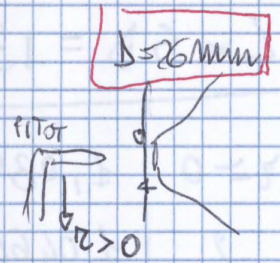 D=26mm
PITOT
r>0